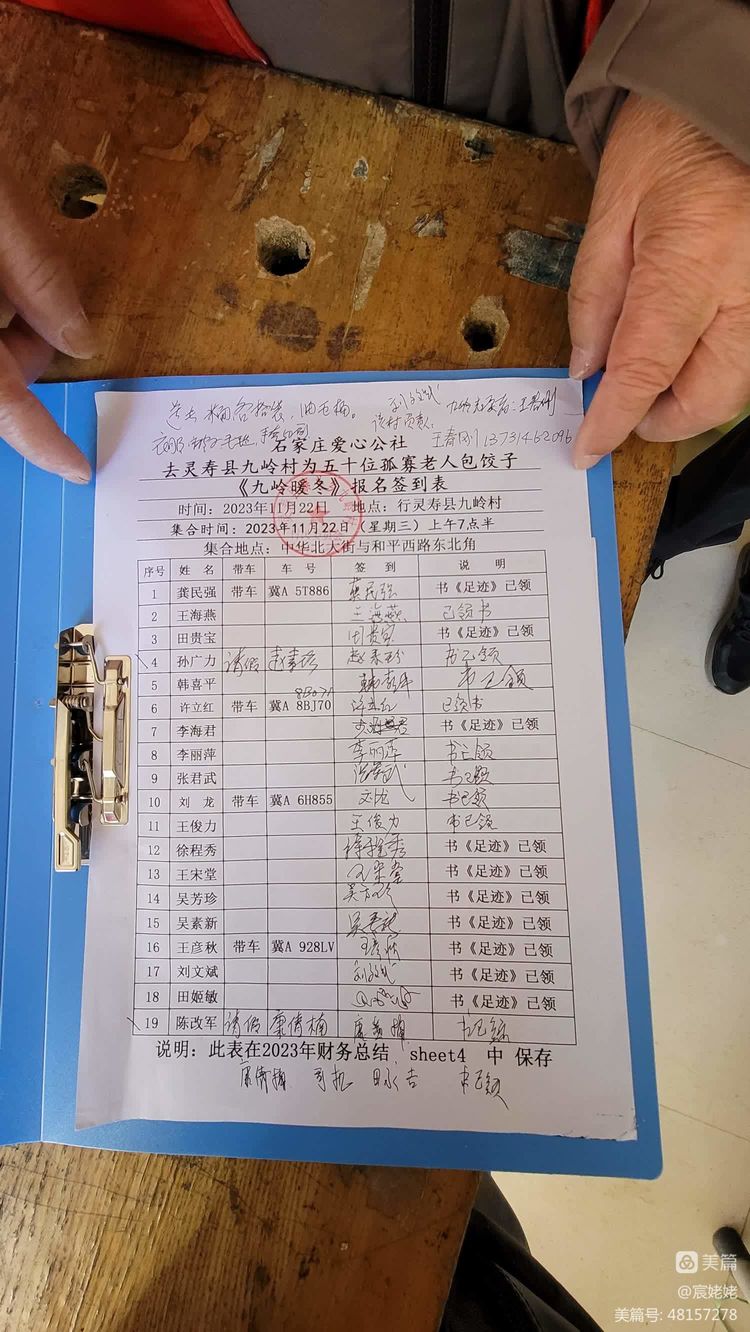 送去 米面各拾袋、油七桶。 刘文斌 九岭村
该村
王春刚 13731462096
石家庄爱心公社
去灵寿县九岭村为五十位孤寡老人包饺子
《九岭暖冬》报名签到表
时间：2023年11月22日 地点：行灵寿县九岭村
集合时间：2023年11月22日（星期三）上午7点半
集合地点：中华北大街与和平西路东北角
序号 姓 名 带车 车 号 签 到 说 明
1 龚民强 带车 冀A 5T886 龚民强 书《足迹》已领
2 王海燕 王海燕 已领书
3 田贵宝 田贵宝 书《足迹》已领
4 孙广力 请假 书已领
5 韩喜平 韩喜平 书已领
6 许立红 带车 冀A 8BJ70 许立红 已领书
7 李海君 李海君 书《足迹》已领
8 李丽萍 李丽萍 书已领
9 张君武 张君武 书已领
10 刘 龙 带车 冀A 6H855 刘龙 书已领
11 王俊力 王俊力 书已领
12 徐程秀 徐程秀 书《足迹》已领
13 王宋堂 王宋堂 书《足迹》已领
14 吴芳珍 吴芳珍 书《足迹》已领
15 吴素新 吴素新 书《足迹》已领
16 王彦秋 带车 冀A 928LV 王彦秋 书《足迹》已领
17 刘文斌 刘文斌 书《足迹》已领
18 田姬敏 书《足迹》已领
19 陈改军 请假 康倩楠 康倩楠 书已领
说明：此表在2023年财务总结 sheet4 中 保存
康倩楠 司机 田永吉 书已领
美篇
@宸姥姥
美篇号: 48157278